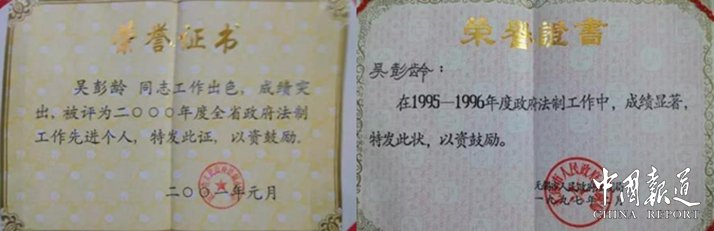 荣誉证书
吴彭龄 同志工作出色，成绩突
出，被评为二〇〇〇年度全省政府法制
工作先进个人，特发此证，以资鼓励。
元月
荣誉證書
吴彭龄：
在1995—1996年度政府法制工作中，成绩显著，
特发此状，以资鼓励。
市人民政府
一九九七年
中國報道
CHINA REPORT